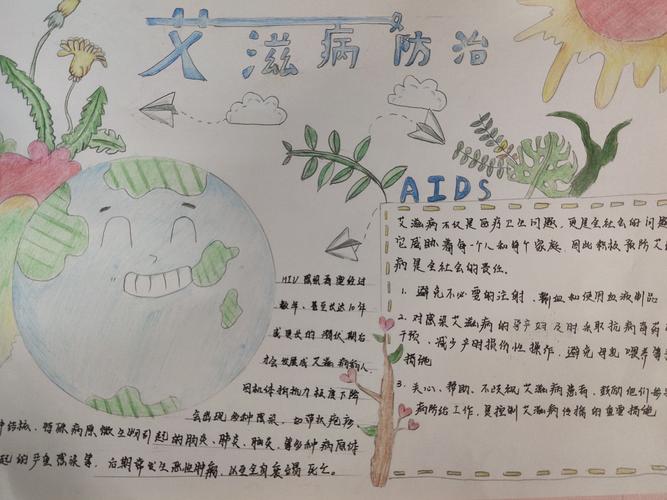 艾滋病防治
AIDS
艾滋病不仅是医疗卫生问题,更是全社会的问题
它威胁着每一个人和每个家庭,因此积极预防艾
病是全社会的责任。
1. 避免不必要的注射、输血和使用血液制品
2. 对感染艾滋病的孕产妇及时采取抗病毒药
干预、减少产时损伤性操作,避免母乳喂养等
措施
3. 关心、帮助、不歧视艾滋病患者,鼓励他们参与
病防治工作,是控制艾滋病传播的重要措施
HIV感染者要经过
数年、甚至长达10年
或更长的潜伏期后
才会发展成艾滋病病人,
因机体抵抗力极度下降
会出现多种感染,如带状疱疹、
肺结核,特殊病原微生物引起的肠炎、肺炎、脑炎,等多种病原体
起的严重感染等,后期常发生恶性肿瘤,以至全身衰竭死亡。